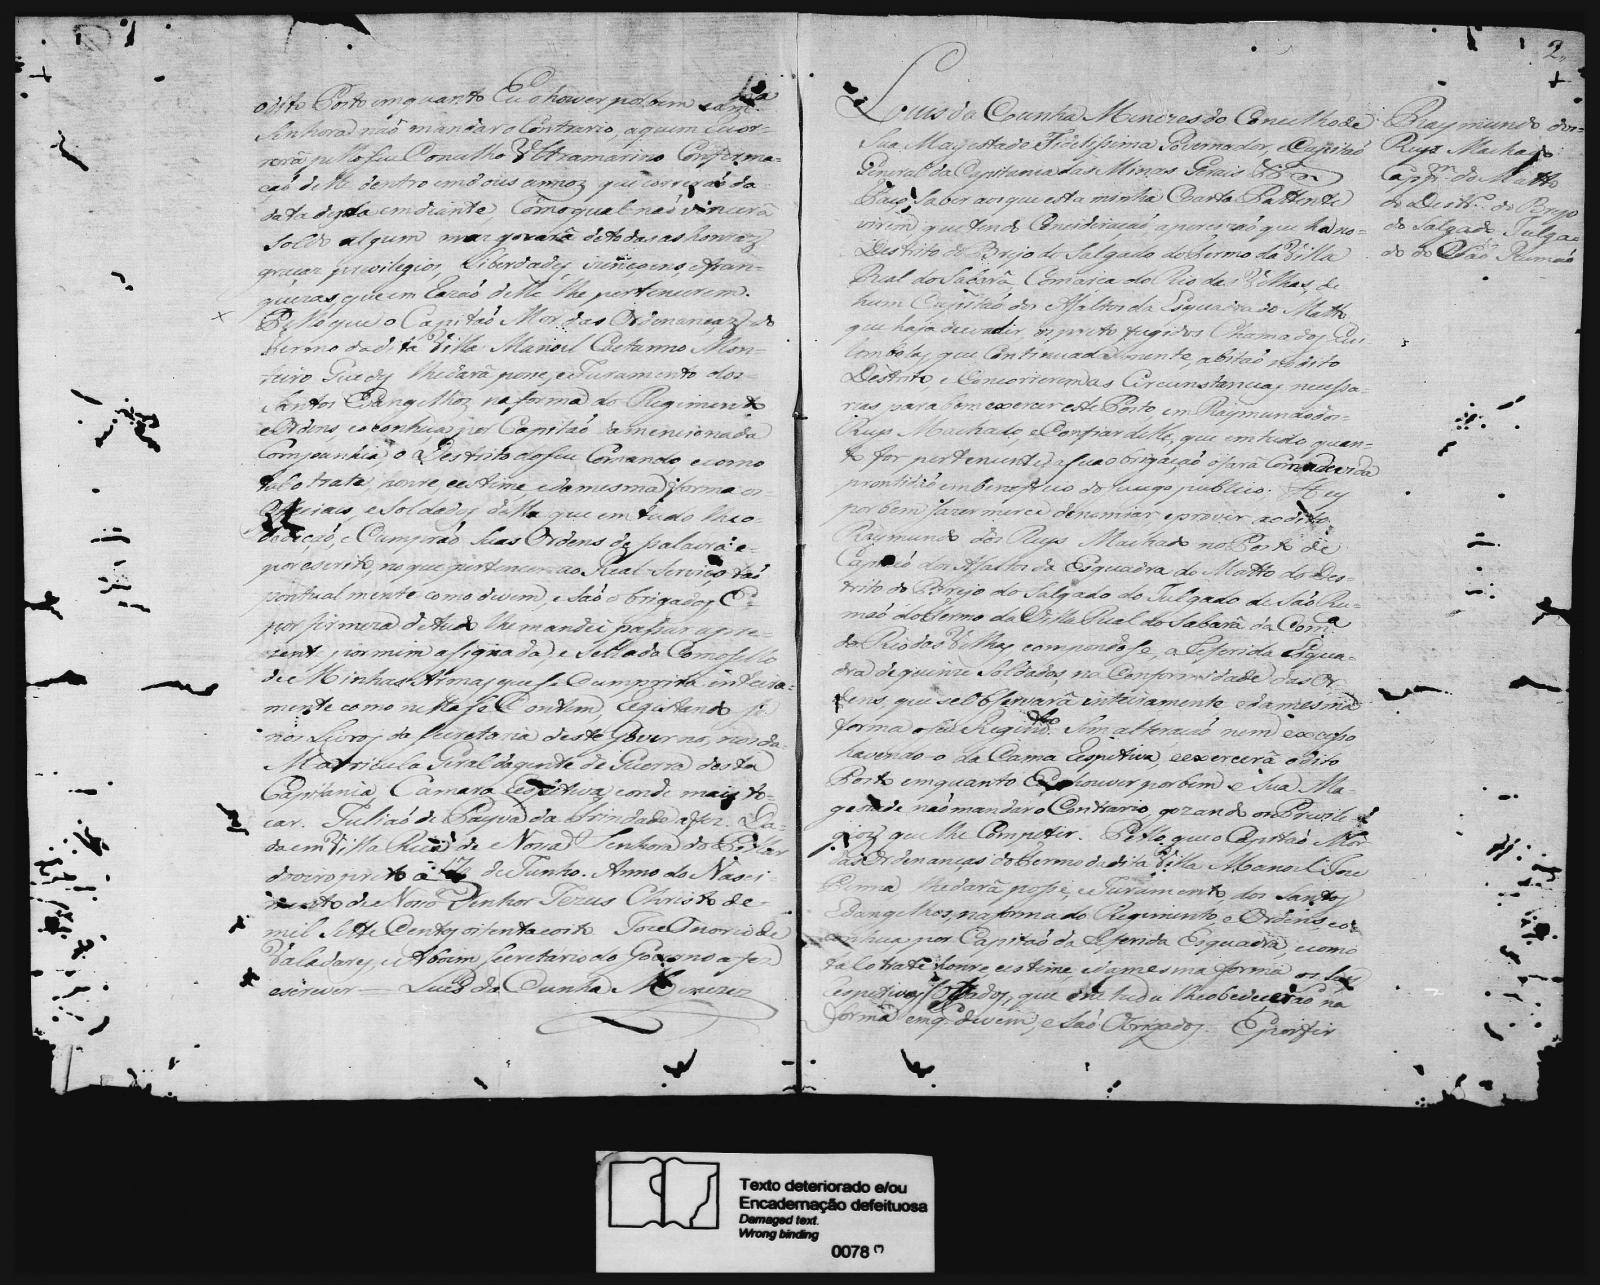 o dito Posto emquanto Eu o houver por bem e a mª
Senhora não mandar o Contrario, a quem recor-
rerá pello seu Concelho Ultramarino Confirma-
ção delle dentro em dois annos que correrão da
data desta em diante, Com o qual não vencerá
soldo algum mas gozará de todas as honras
graças privilegios, Liberdades izençoens, e fran-
quezas, que em razão delle lhe pertencerem.
Pello que o Capitão Mor das Ordenanças do
termo da dita Villa Manoel Caetanno Mon-
teiro Guedes lhe dará posse, e Juramento dos
Santos Evangelhos na forma do Regimento
e Ordens, e o conheça por Capitão da mencionada
Companhia, o Destrito do seu Comando, e como
tal o trate, honre, e estime, e da mesma forma os
Officiaes, e Soldados della que em tudo lhe o-
bedeção, e Cumprão suas Ordens de palavra e
por escrito, no que pertencer ao Real Serviço tão
pontual mente como devem, e são obrigados, E
por firmeza de tudo lhe mandei passar a pre-
zente por mim asignada, e Sellada Com o sello
de Minhas Armas, que se Cumprirá inteira-
mente como nella se Contem, registando se
nos Livros da Secretaria deste Governo, nos da
Matricula Geral da gente de Guerra desta
Capitania Camara respetiva, e onde mais to-
car. Julião de Payva da Trindade a fez. Da-
da em Villa Rica de Nossa Senhora do Pillar
do ouro preto a 17 de Junho. Anno do Nasci-
mento de Nosso Senhor Jezus Christo de
mil Sette Centos oitenta e oito Joze Onorio de
Valadares, e Aboim Secretario do Governo a fez
escrever = Luis da Cunha Menezes
2
Louis da Counha Menezes do Concelho de
Sua Magestade Fidelissima Governador, e Capitão
General da Capitania das Minas Gerais &ª
Faço Saber aos que esta minha Carta Pattente
virem, que tendo Concideração a percizão que ha no
Destrito do Brejo do Salgado do termo da Villa
Real do Sabará Comarca do Rio das Velhas, de
hum Capitão dos Asaltos da Esquadra do Matto
que haja de evadir os preto fugidos Chamados Qui
lombolas, que Continuada mente, abitão no dito
Destrito, e Concorrerem as Circunstancias necessa-
rias, para bem exercer este Posto em Raymundo dos
Reys Machado, e Confiar delle, que em tudo quan-
to for pertencente a sua obrigação o fará Com a devida
prontidão em beneficio do socego publico. Hey
por bem fazer merce de nomiar e prover ao dito
Raymundo dos Reys Machado no Posto de
Capitão dos Asaltos da Esquadra do Matto do Des-
trito do Brejo do Salgado do Julgado de São Ro-
mão do termo da Villa Real do Sabará da Comca
do Rio das Velhas, compondo se, a referida Esqua-
dra de quinze Soldados, na Conformidade das Or
dens, que se observará inteiramente e da mesma
forma o seu Regimto. Sem alteração nem excesso
havendo-o da Cama respetiva, e exercerá o dito
Posto emquanto Eu o houver por bem e Sua Ma-
gestade não mandar o Contrario, gozando os Privile
gios, que lhe Competir. Pello que o Capitão Mor
das Ordenanças do termo da dita Villa Manoel Joze
Penna lhe dará posse, e Juramento dos Santos
Evangelhos, na forma do Regimento, e Ordens, e o
conheça por Capitão da referida Esquadra, e como
tal o trate honre, e estime e da mesma forma os seus
respetivos Soldados, que em tudo lhe obedecerão na
forma em q. devem, e são Obrigados. E por fir
Raymundo dos
Reys Machado
Capam. do Matto
do Destro. do Brejo
do Salgado Julga
do de São Romão
Texto deteriorado e/ou
Encadernação defeituosa
Damaged text.
Wrong binding
0078 (*)